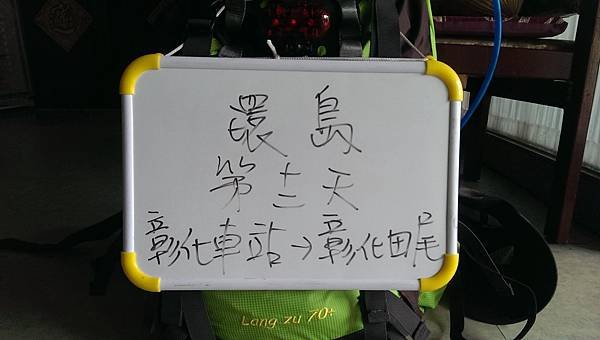 環島
第十二天
彰化車站→彰化田尾
Lang zu 70+